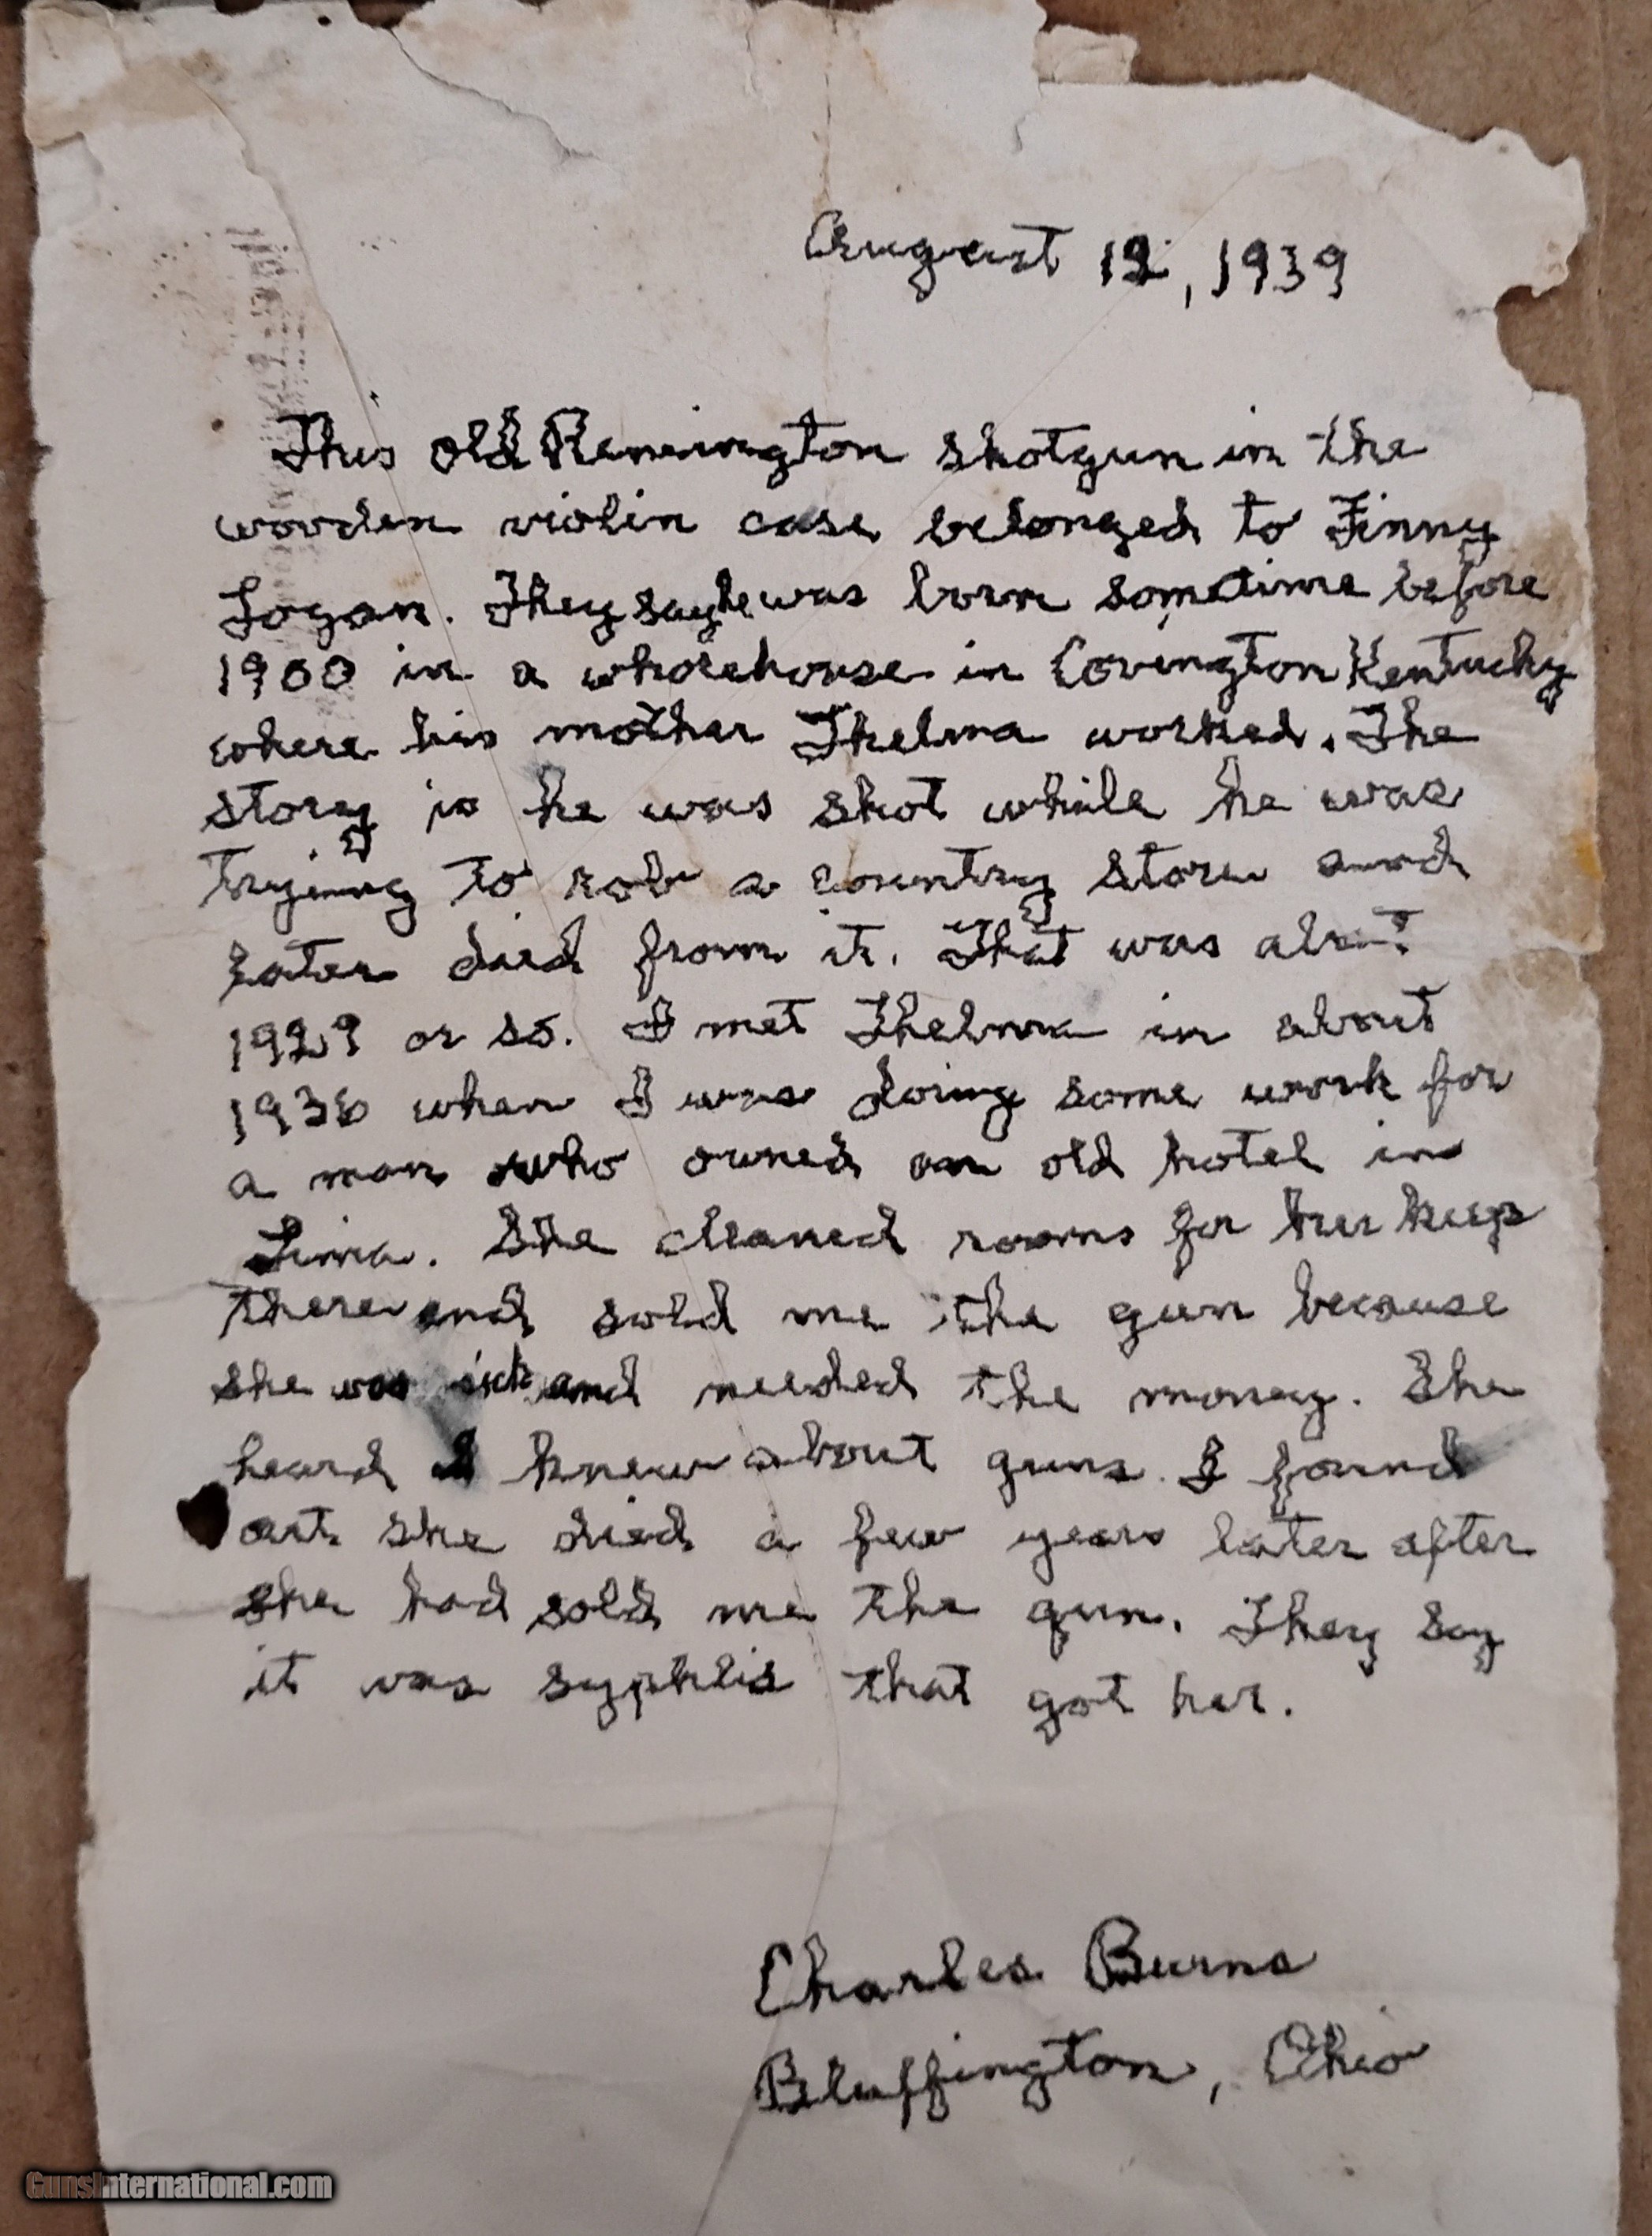 August 12, 1939
This old Remington shotgun in the
wooden violin case belonged to Finny
Logan. They say he was born sometime before
1900 in a whorehouse in Covington Kentucky
where his mother Thelma worked. The
story is he was shot while he was
trying to rob a country store and
later died from it. That was about
1929 or so. I met Thelma in about
1936 when I was doing some work for
a man who owned an old hotel in
Lima. She cleaned rooms for her keep
there and sold me the gun because
she was sick and needed the money. She
heard I knew about guns. I found
out she died a few years later after
she had sold me the gun. They say
it was syphlis that got her.
Charles Burns
Bluffington, Ohio
GunsInternational.com